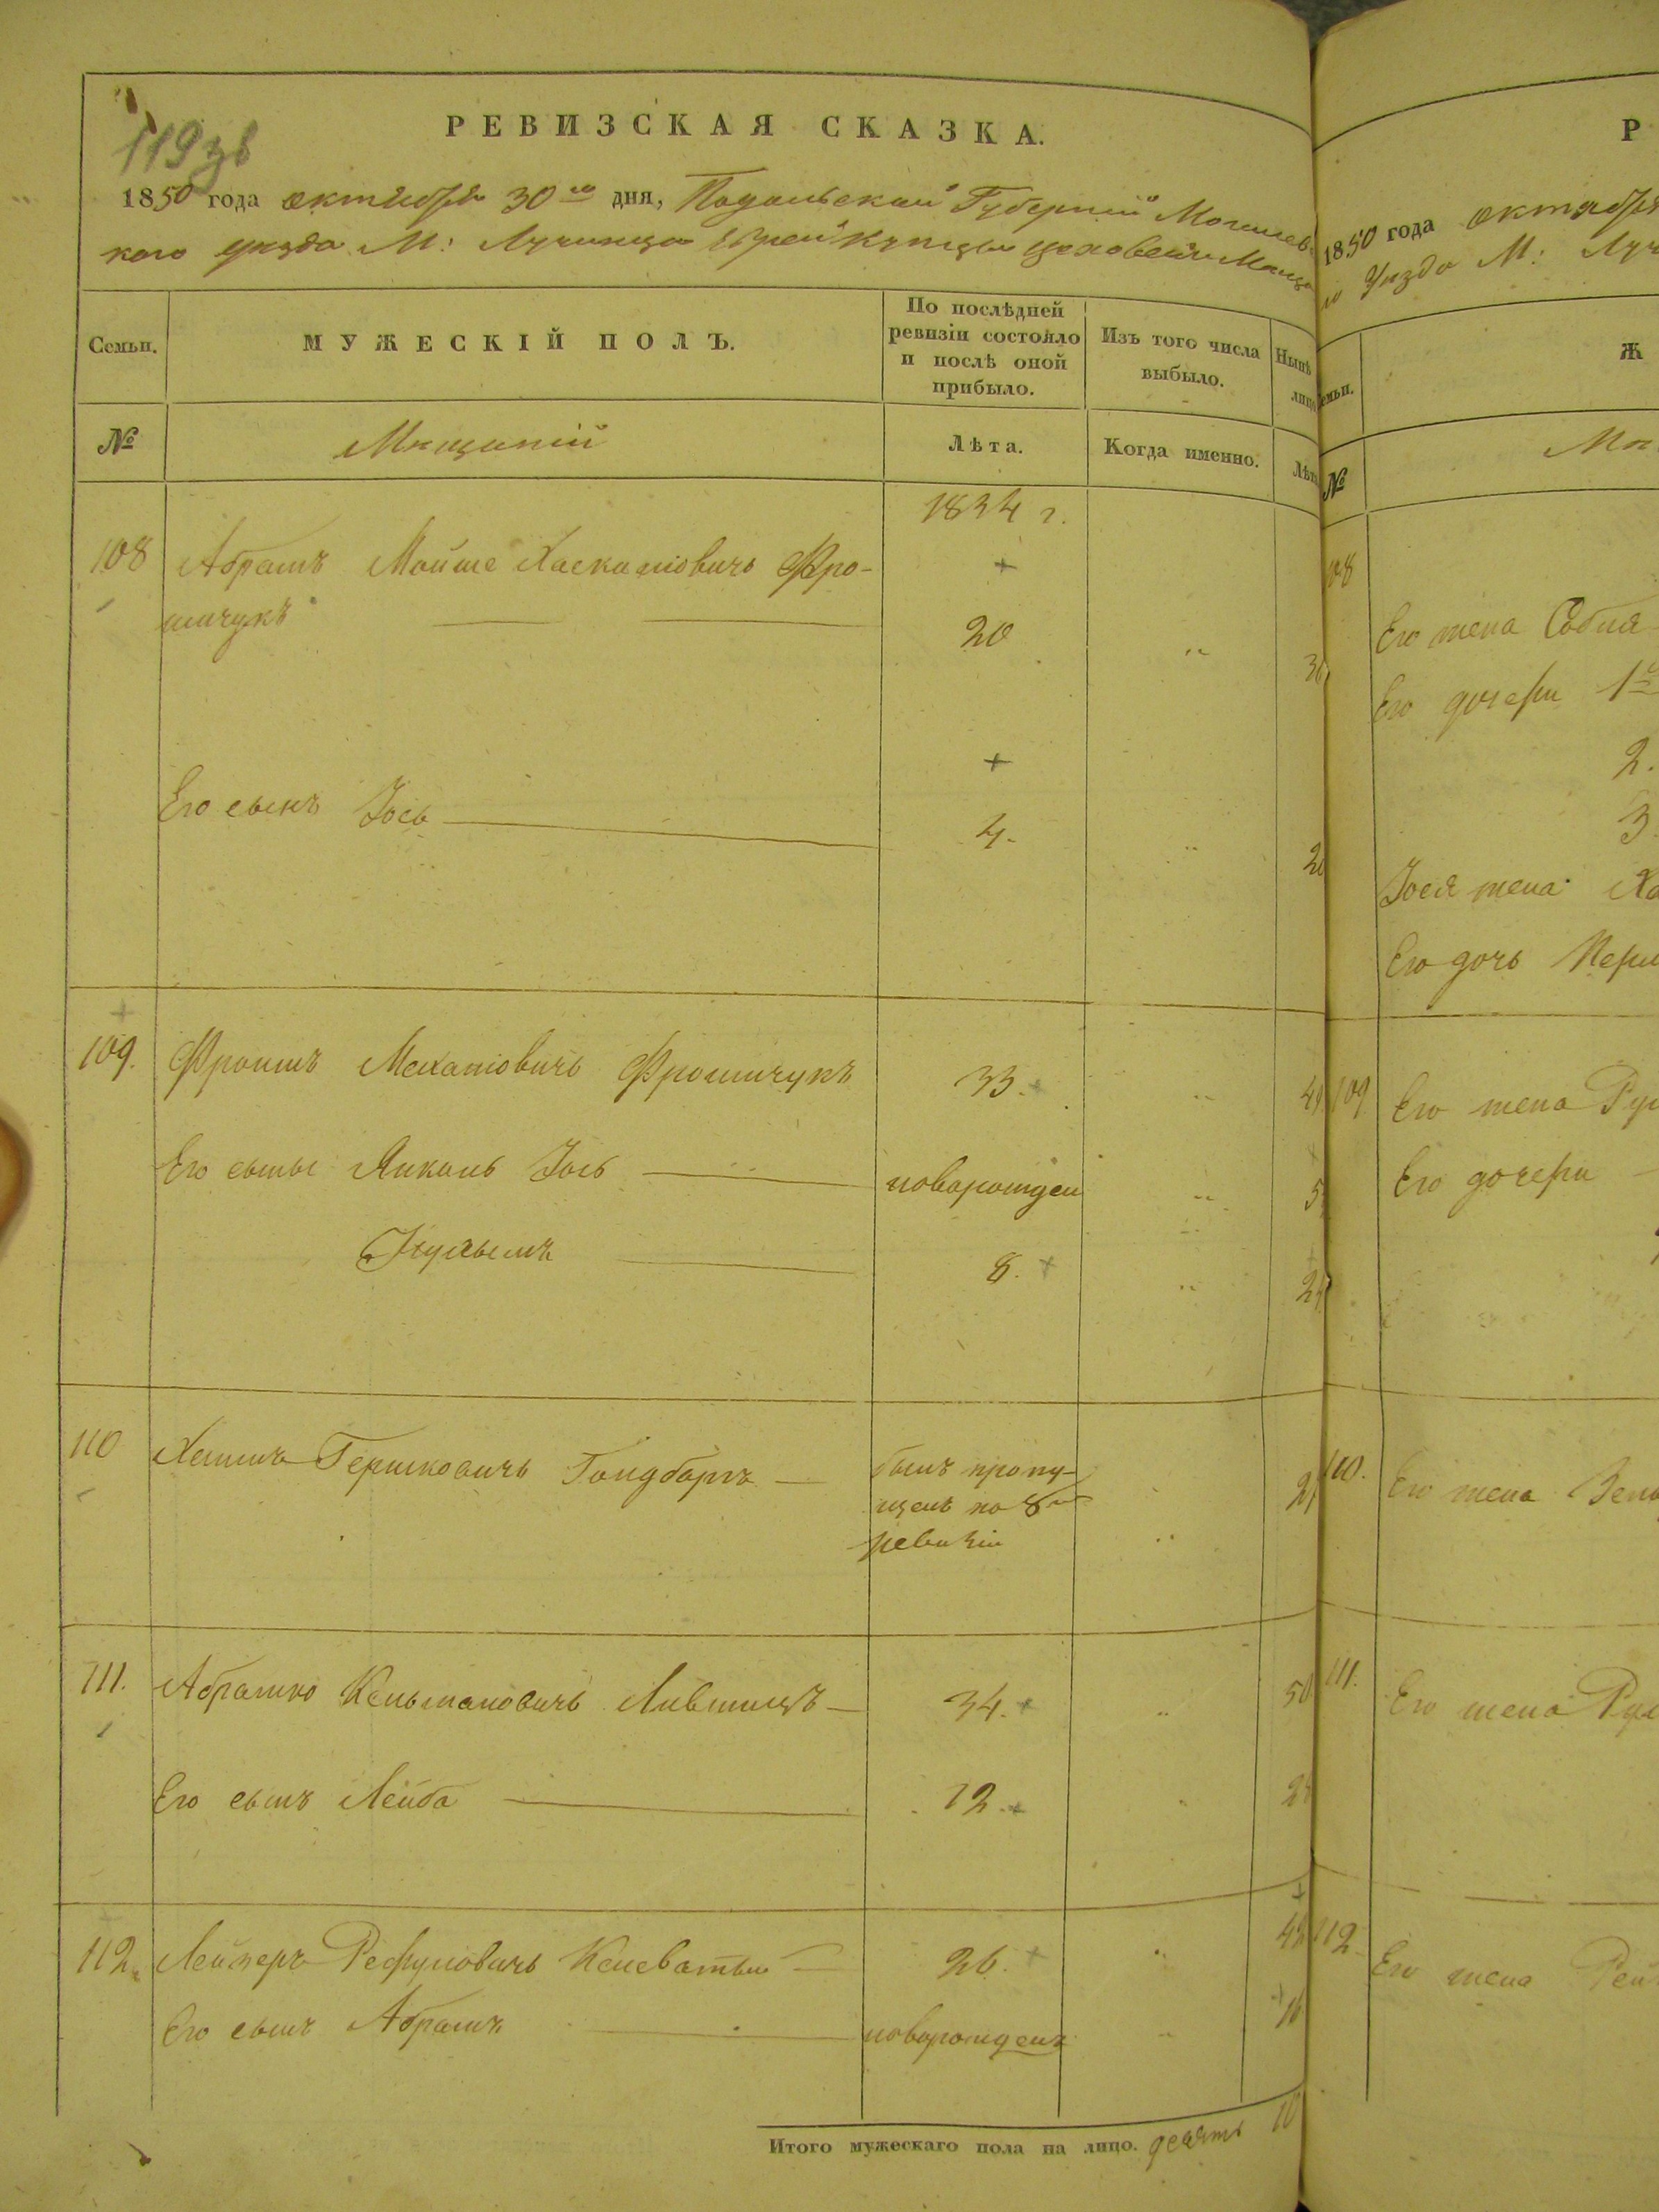 119
РЕВИЗСКАЯ СКАЗКА.
1850 года октября 30го дня, Подольской Губерніи Могилев-
кого уезда М: Лучинца Еврей Купцы цеховеи и Мещан
Семьи.
МУЖЕСКІЙ ПОЛЪ.
По послѣдней ревизіи состояло и послѣ оной прибыло.
Изъ того числа выбыло.
Нынѣ лицо
№
Мещаніи
Лѣта.
Когда именно.
Лѣта
1834 г.
108 Абрамъ Мойше Хаскаліовичъ Фро-
имчукъ 20 36
Его сынъ Іось 4. 20
109. Фроимъ Мехаліовичъ Фроимчукъ 33. 49
Его сыны Янкель Іось новорожден
8. 24
110 Хаимъ Гершковичъ Голдбаргъ былъ пропу- 21
щенъ по 8й
ревизіи
111. Абрамко Кельмановичъ Лившицъ 34. 50
Его сынъ Лейба 12. 28
112. Лейзеръ Рефуловичъ 26. 42
Его сынъ Абрамъ новорожденъ 16
Итого мужескаго пола на лицо. десять 10
Р
1850 года октября
Уезда М: Луч
емьи.
Ж
№
108
Его жена Собля
Его дочери 1я
2.
3
Іося жена Ха
Его дочь Перл
109 Его жена
Его дочери
110. Его жена
111. Его жена
112. Его жена Рей